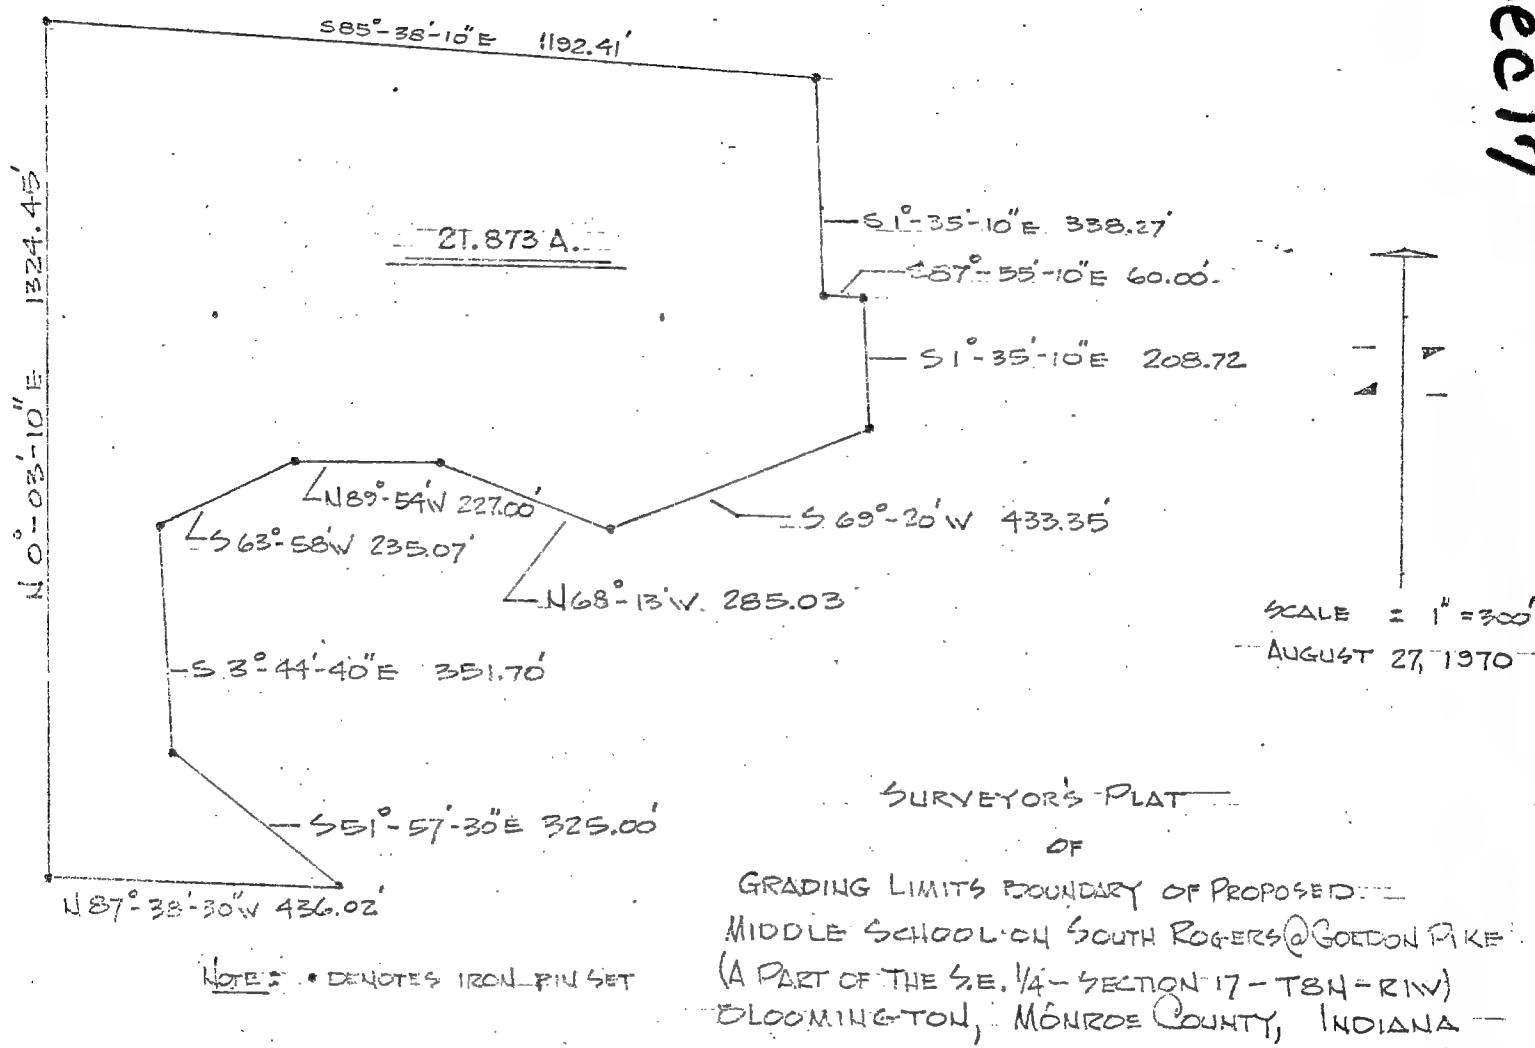 S85°-38'-10"E 1192.41'
N 0°-03'-10"E 1324.45'
27.873 A.
S 1°-35'-10"E 338.27'
S87°-55'-10"E 60.00'
S 1°-35'-10"E 208.72
N89°-54'W 227.00'
S 69°-20'W 433.35'
S 63°-58'W 235.07'
N68°-13'W. 285.03'
S 3°-44'-40"E 351.70'
S51°-57'-30"E 325.00'
N87°-38'-30"W 436.02'
NOTE: • DENOTES IRON PIN SET
SCALE = 1" = 300'
AUGUST 27, 1970
SURVEYOR'S PLAT
OF
GRADING LIMITS BOUNDARY OF PROPOSED
MIDDLE SCHOOL ON SOUTH ROGERS @ GORDON PIKE
(A PART OF THE S.E. 1/4 - SECTION 17 - T8N - R1W)
BLOOMINGTON, MONROE COUNTY, INDIANA